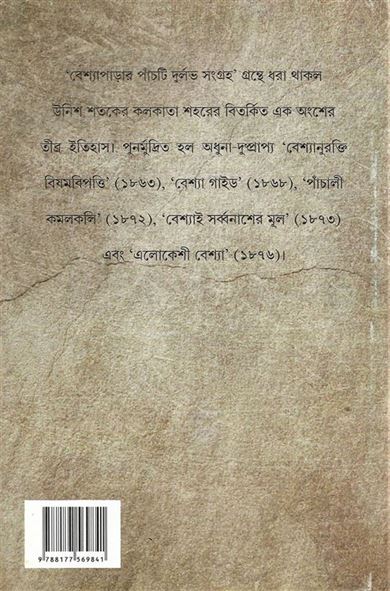 'বেশ্যাপাড়ার পাঁচটি দুর্লভ সংগ্রহ' গ্রন্থে ধরা থাকল
উনিশ শতকের কলকাতা শহরের বিতর্কিত এক অংশের
তীব্র ইতিহাস। পুনর্মুদ্রিত হল অধুনা-দুষ্প্রাপ্য 'বেশ্যানুরক্তি
বিষমবিপত্তি' (১৮৬৩), 'বেশ্যা গাইড' (১৮৬৮), 'পাঁচালী
কমলকলি' (১৮৭২), 'বেশ্যাই সর্ব্বনাশের মূল' (১৮৭৩)
এবং 'এলোকেশী বেশ্যা' (১৮৭৬)।
9 788177 569841